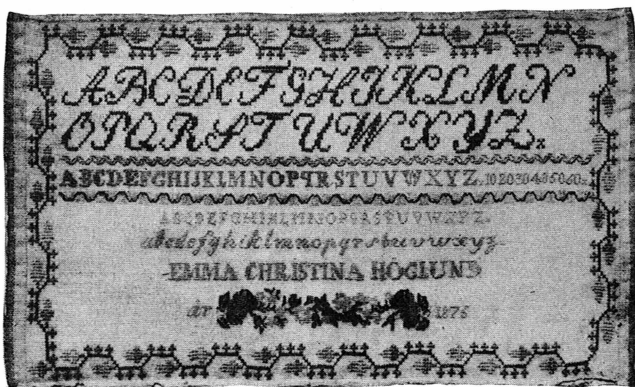 ABCDEFGHIJKLMN
OPQRSTUWXYZ
ABCDEFGHIJKLMNOPQRSTUVWXYZ. 102030405060
ABCDEFGHIKLMNOPQRSTUVWXYZ.
abcdefghiklmnopqrstuvwxyz
EMMA CHRISTINA HÖGLUND
år 1876